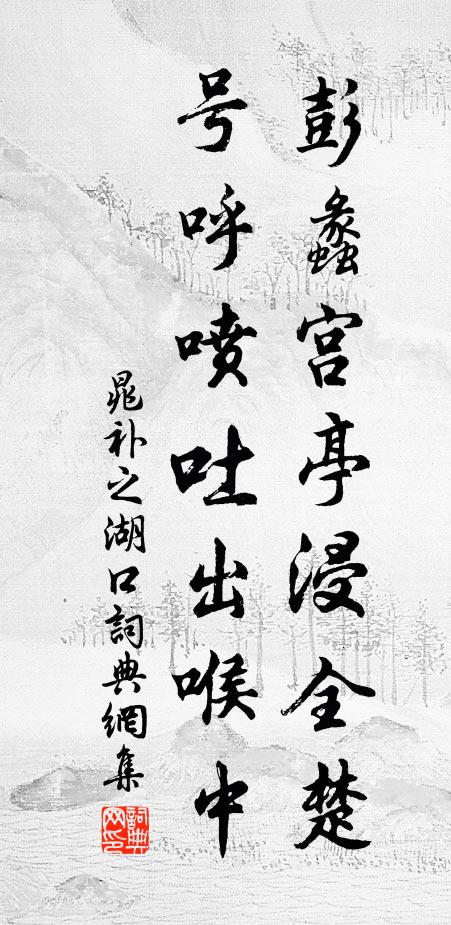 彭蠡宫亭浸全楚
号呼喷吐出喉中
晁补之湖口詞典網集
詞典網印